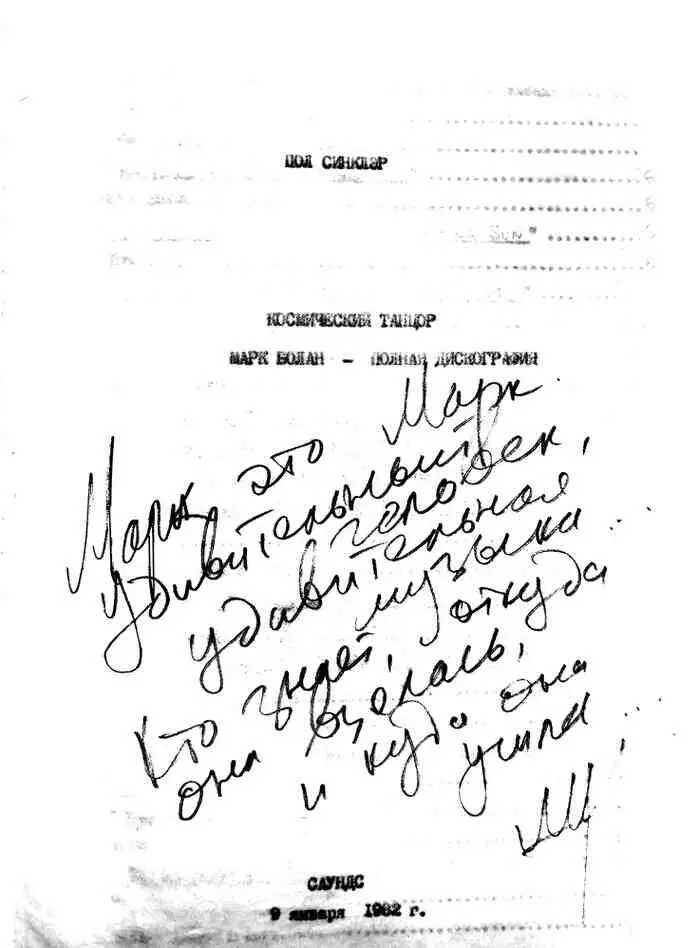 ПОЛ СИНКЛЭР
Sun"
КОСМИЧЕСКИЙ ТАНЦОР
МАРК БОЛАН - ПОЛНАЯ ДИСКОГРАФИЯ
Марк это Марк
удивительный человек,
удивительная музыка...
Кто знает, откуда
она взялась,
и куда она
ушла...
САУНДС
9 января 1982 г.